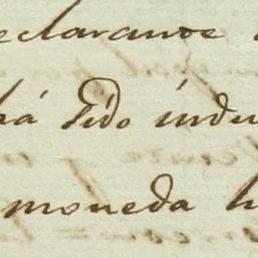 eclarante
há Sido indu
moneda h